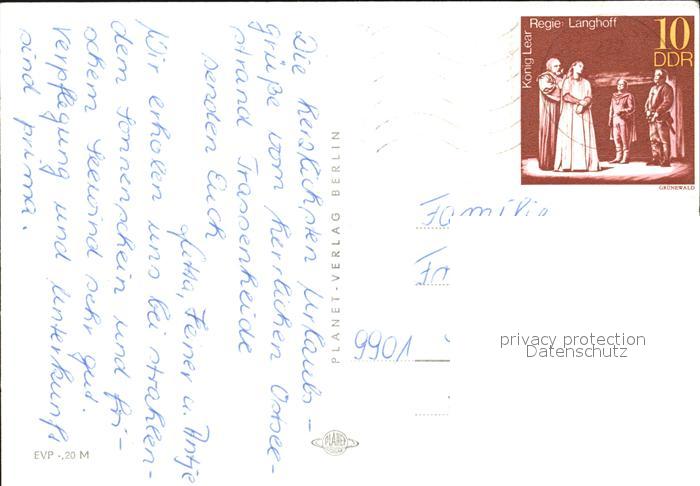 Die herzlichsten Urlaubs-
grüße vom herrlichen Ostsee-
strand Trassenheide
senden Euch
Jutta, Heiner u. Antje
Wir erholen uns bei strahlen-
dem Sonnenschein und fri-
schem Seewind sehr gut.
Verpflegung und Unterkunft
sind prima.
EVP -,20 M
PLANET-VERLAG BERLIN
PLANET
König Lear
Regie: Langhoff
10
DDR
GRÜNEWALD
Familie
9901
privacy protection
Datenschutz